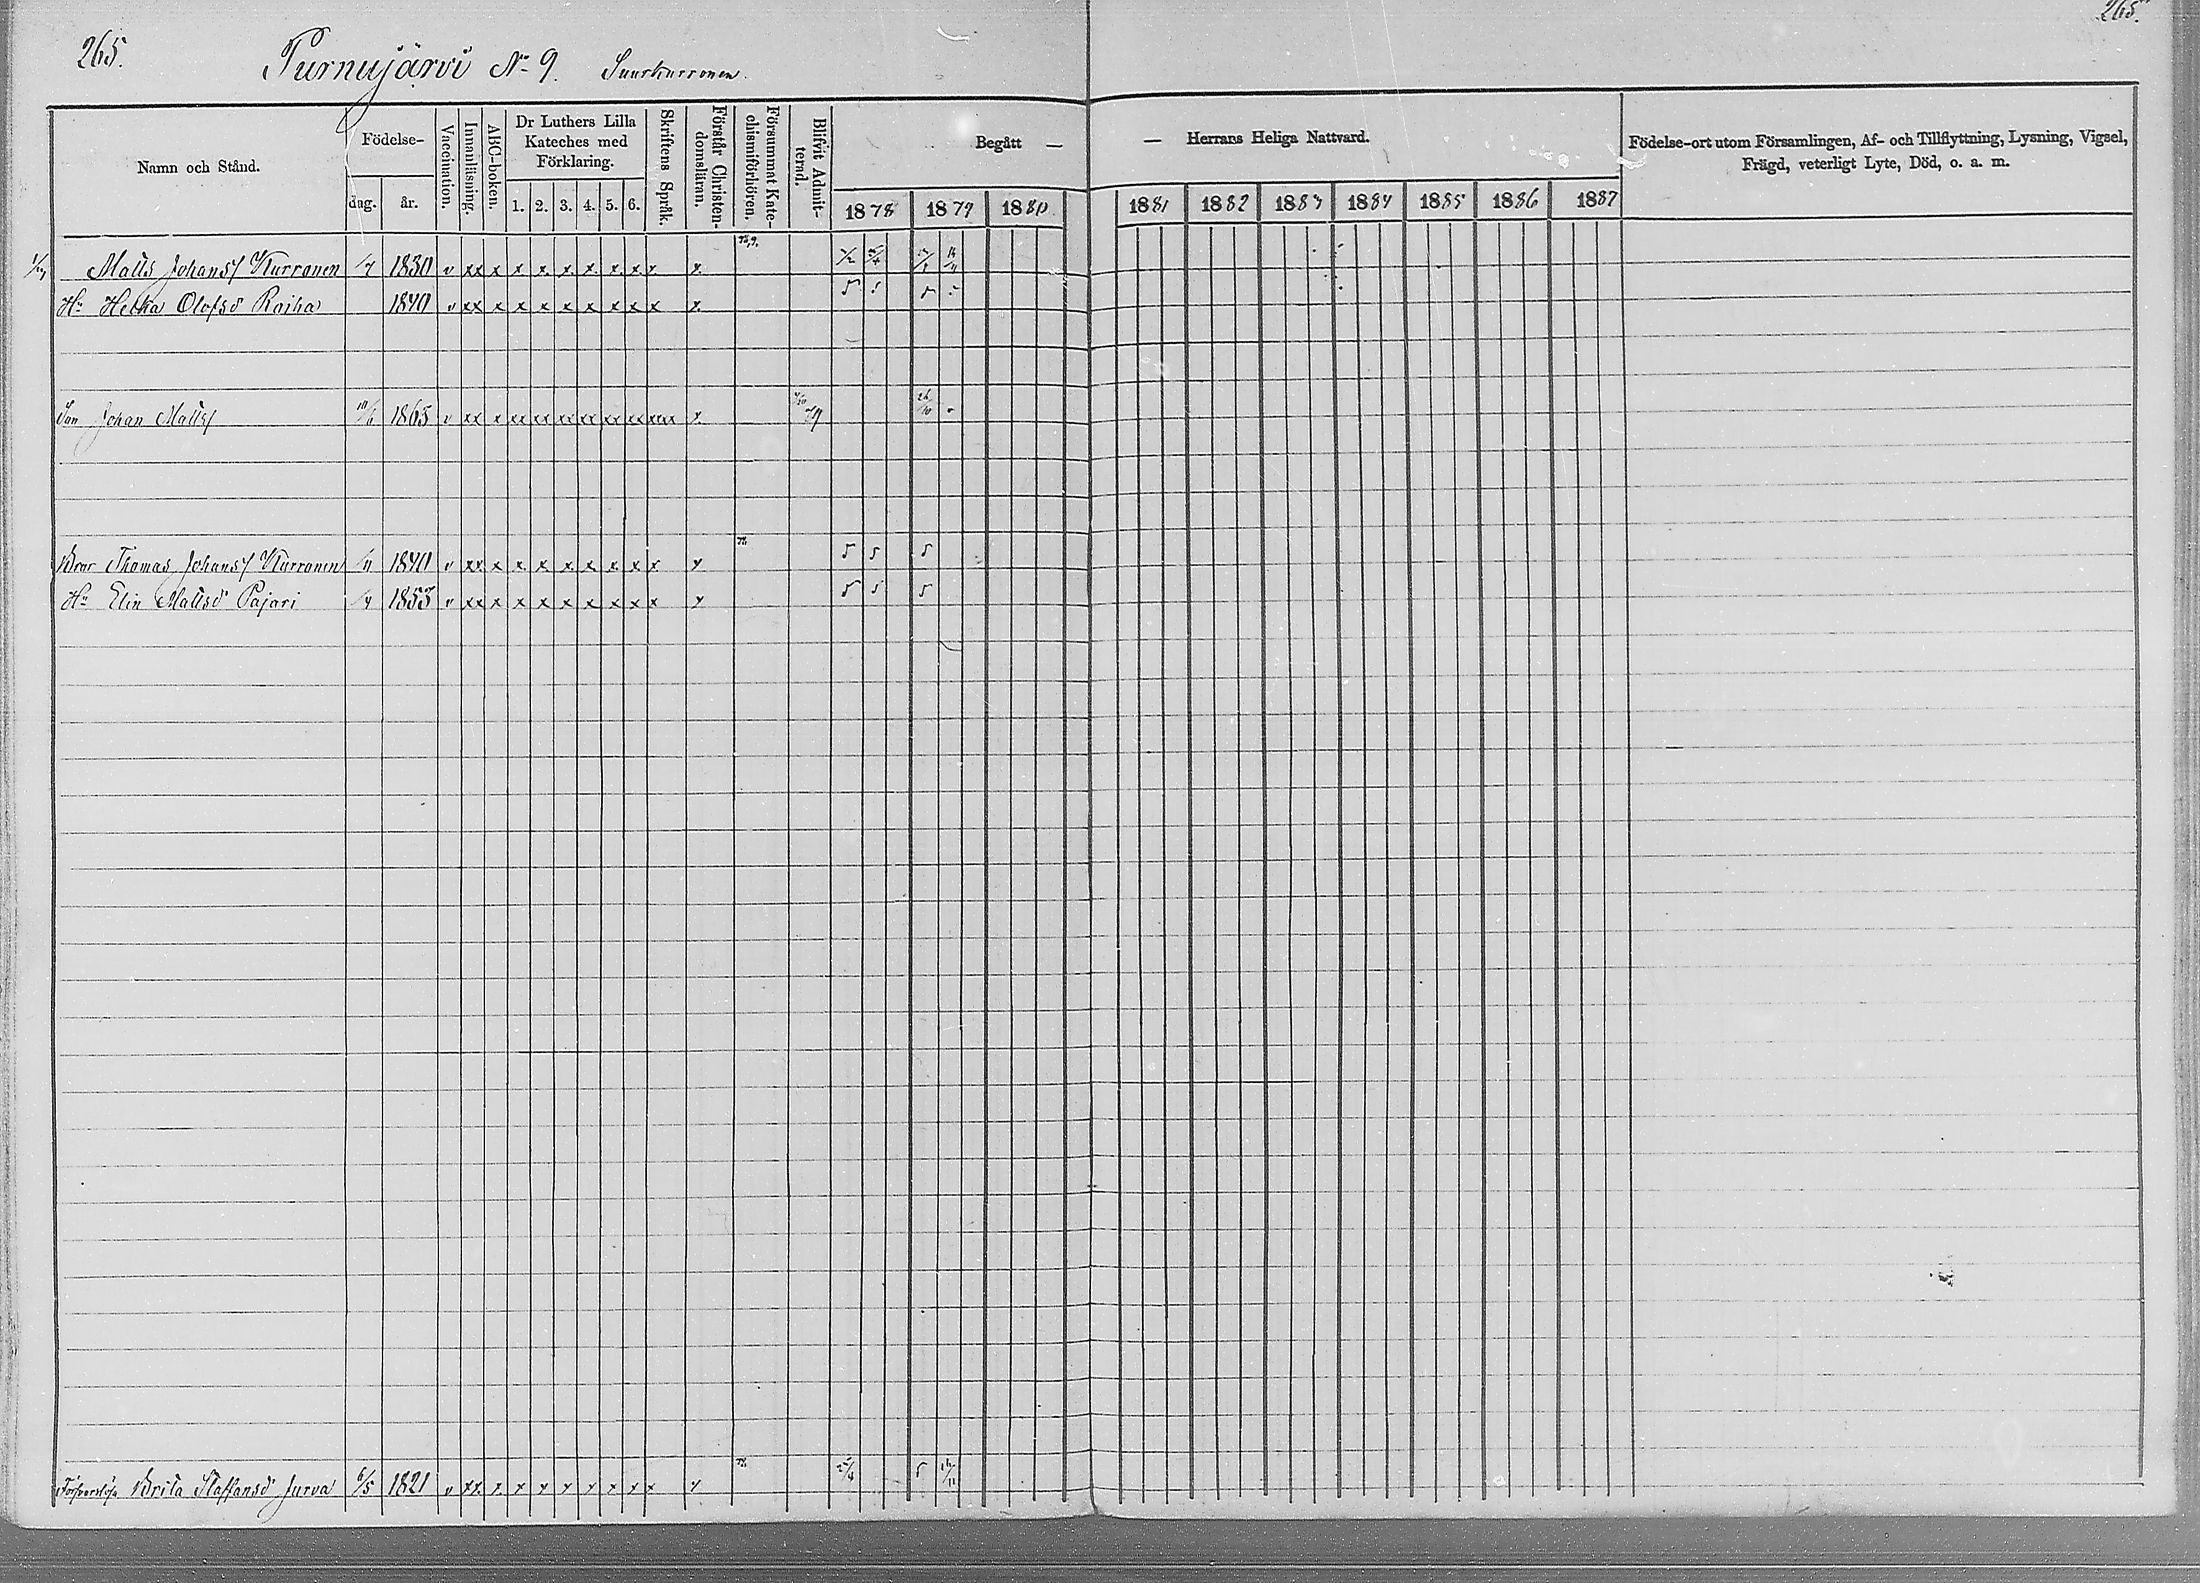 265.
265.
Purnujärvi No 9. Suurkurronen.
Namn och Stånd.
Födelse-
dag.
år.
Vaccination.
Innanläsning.
ABC-boken.
Dr Luthers Lilla Kateches med Förklaring.
1. 2. 3. 4. 5. 6.
Skriftens Språk.
Förstår Christendomsläran.
Försummat Katechismiförhören.
Blifvit Admitterad.
Begått —
— Herrans Heliga Nattvard.
1878 1879 1880 1881 1882 1883 1884 1885 1886 1887
Födelse-ort utom Församlingen, Af- och Tillflyttning, Lysning, Vigsel,
Frägd, veterligt Lyte, Död, o. a. m.
Matts Johansf Kurronen /7 1830 v xx x x x x x x x x x
Hu Helka Olofsd Raiha 1840 v xx x x x x x x x x x
Son Johan Mattsf 10/6 1865 v xx x xx xx xx xx xx xx xxx x
Bror Thomas Johansf Kurronen /11 1840 v xx x x x x x x x x x 5 5 5
Hu Elin Mattsd Pajari /4 1855 v xx x x x x x x x x x 5 5 5
Brita Staffansd Jurva 6/5 1821 v xx x x x x x x x x x 25/4 5